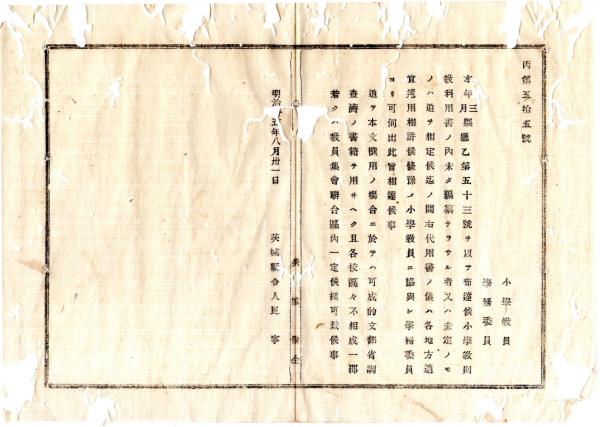 丙第五拾五號
小學教員
學務委員
本年三月縣甕乙第五十三號ヲ以テ布達候小學教則
教科用書ノ內未タ編纂ナラサル者又ハ未定ノモ
ノハ追ヲ相定候迄ノ間右代用書ノ儀ハ各地方適
宜撰用相許候條豫メ小學教員ニ協與シ學務委員
ヨリ可伺出此旨相達候事
追ヲ本文撰用ノ場合ニ於テハ可成的文部省調
査濟ノ書籍ヲ用井ヘク且各校區々不相成一郡
若クハ教員集會聯合區內一定候樣可致候事
明治 五年八月卅一日
茨城縣令人見 寧
茨城縣